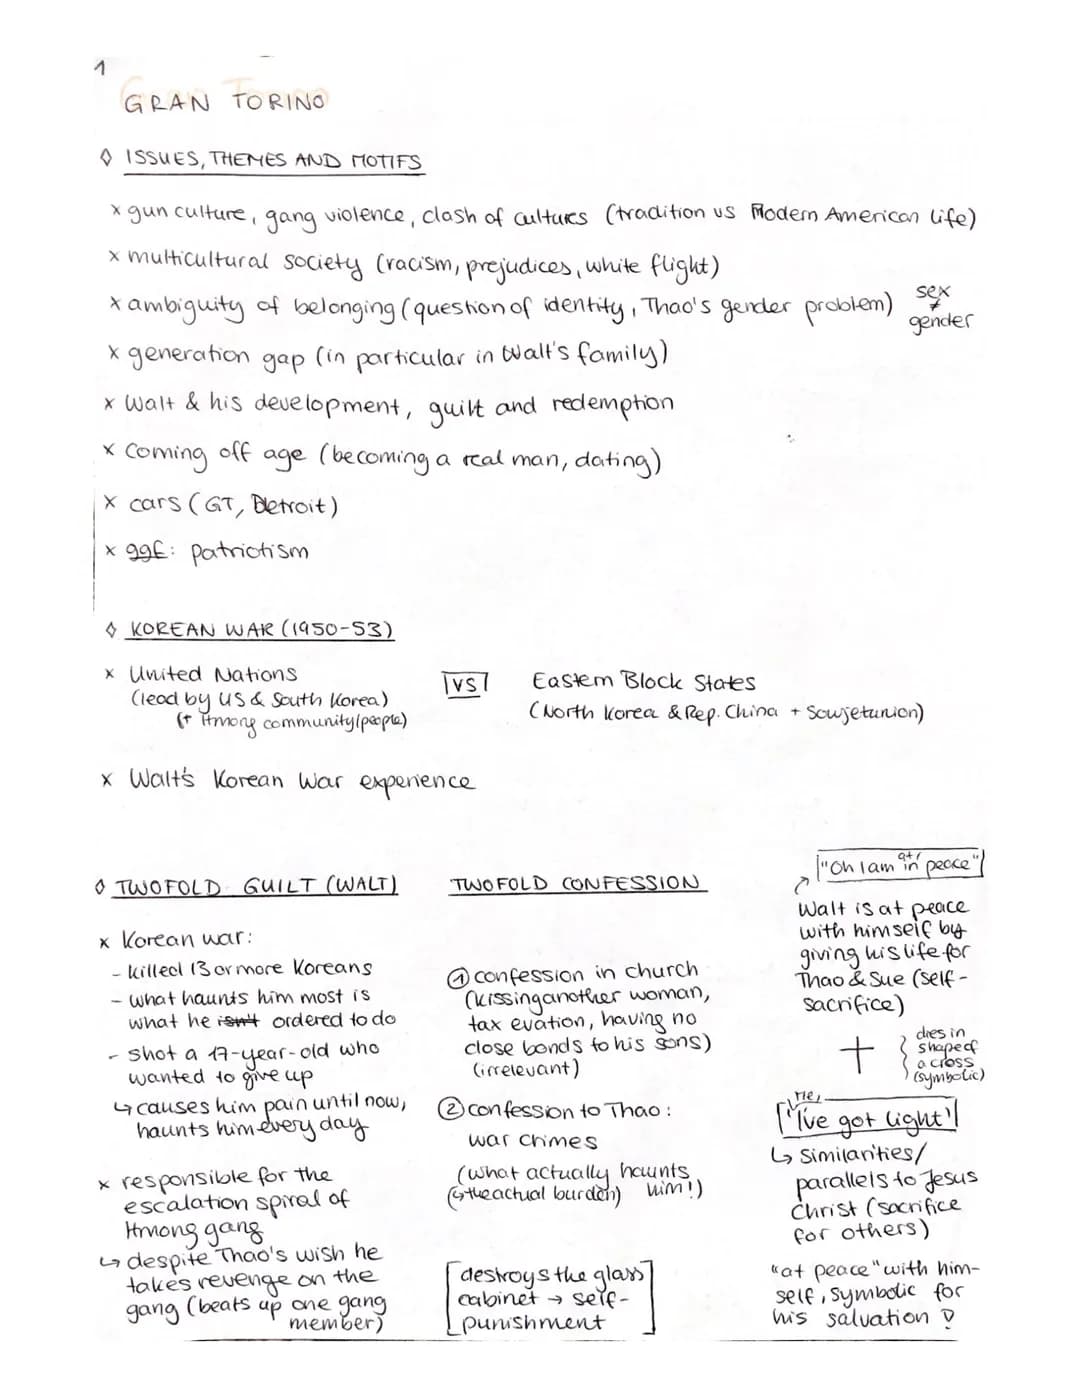 1
GRAN TORINO
◊ ISSUES, THEMES AND MOTIFS
x gun culture, gang violence, clash of cultures (tradition vs Modern American life)
x multicultural society (racism, prejudices, white flight)
x ambiguity of belonging (question of identity, Thao's gender problem) sex ≠ gender
x generation gap (in particular in Walt's family)
x Walt & his development, guilt and redemption
x Coming off age (becoming a real man, dating)
x cars (GT, Detroit)
x ggf: patriotism
◊ KOREAN WAR (1950-53)
x United Nations
(lead by US & South Korea)
(+ Hmong community/people)
VS
Eastern Block States
(North Korea & Rep. China + Sowjetunion)
x Walt's Korean War experience
◊ TWOFOLD GUILT (WALT)
x Korean war:
- killed 13 or more Koreans
- what haunts him most is
what he isn't ordered to do
- shot a 17-year-old who
wanted to give up
↳ causes him pain until now,
haunts him every day
x responsible for the
escalation spiral of
Hmong gang
↳ despite Thao's wish he
takes revenge on the
gang (beats up one gang
member)
TWOFOLD CONFESSION
① confession in church
(kissing another woman,
tax evation, having no
close bonds to his sons)
(irrelevant)
② confession to Thao:
war crimes
(what actually haunts
(↳ the actual burden) him!)
[destroys the glass
cabinet → self-
punishment]
"Oh I am in at peace"
Walt is at peace
with himself by
giving his life for
Thao & Sue (self-
sacrifice)
dies in
shape of
a cross
(symbolic)
"Me,
I've got light"
↳ Similarities/
parallels to Jesus
Christ (sacrifice
for others)
"at peace" with him-
self, symbolic for
his salvation !